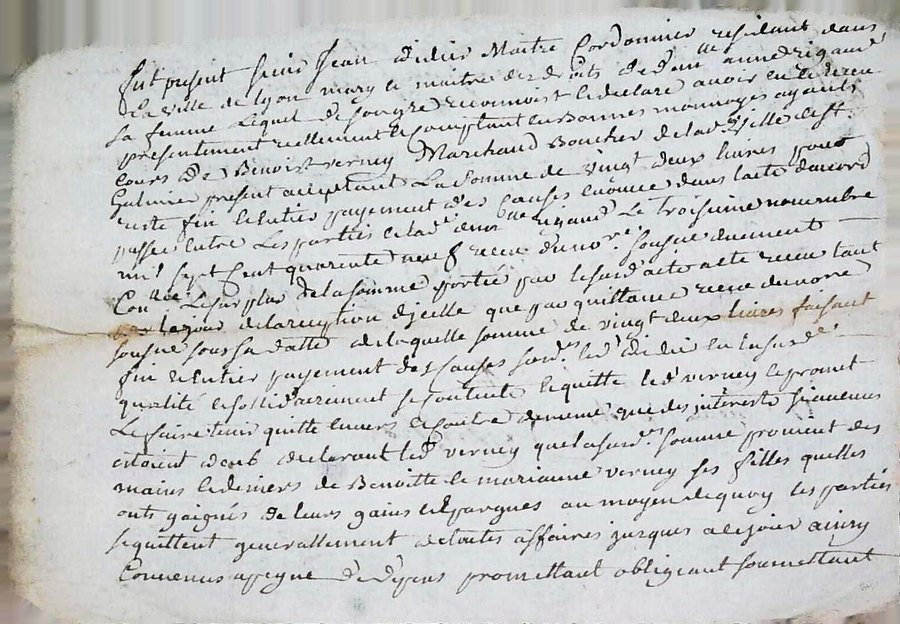 fut present sieur Jean Didier Maitre Cordonnier residant dans
la ville de Lyon mary et maitre des droits de d^lle anne rigaud
sa femme lequel de son gré reconnoit et declare avoir eu et receu
presentement reellement et comptant en bonnes monnoyes ayants
cours de Benoist verney Marchand Boucher de lad^e ville de st
Galmier present acceptant la somme de vingt deux livres pour
reste fin et entier payement des causes enoncé dans l'acte d'accord
passé entre les parties et lad^e rigaud le troisieme novembre
mil sept cent quarente neuf receu du no^re sousigné duement
Con^lé le surplus de la somme portée par le susd acte a été receu tant
le jour de la reception d'icelle que par quittance receue du no^re
sousigné sous sa datte de laquelle somme de vingt deux livres faisant
fin et entier payement des causes susd^es led^t didier en lasusd^e
qualité et sollidairement se contente et quitte led^t verney et promet
le faire tenir quitte envers et contre de meme que des interets si aucuns
étoient deub declarant led^t verney que lasusd^e somme provient des
mains et deniers de Benoitte et marianne verney ses filles quelles
onts gaignés de leurs gains et epargnes au moyen de quoy les parties
se quittent generallement de toutes affaires jusques a ce jour ainsy
Convenus a peyne de depens promettant obligeant soumettant